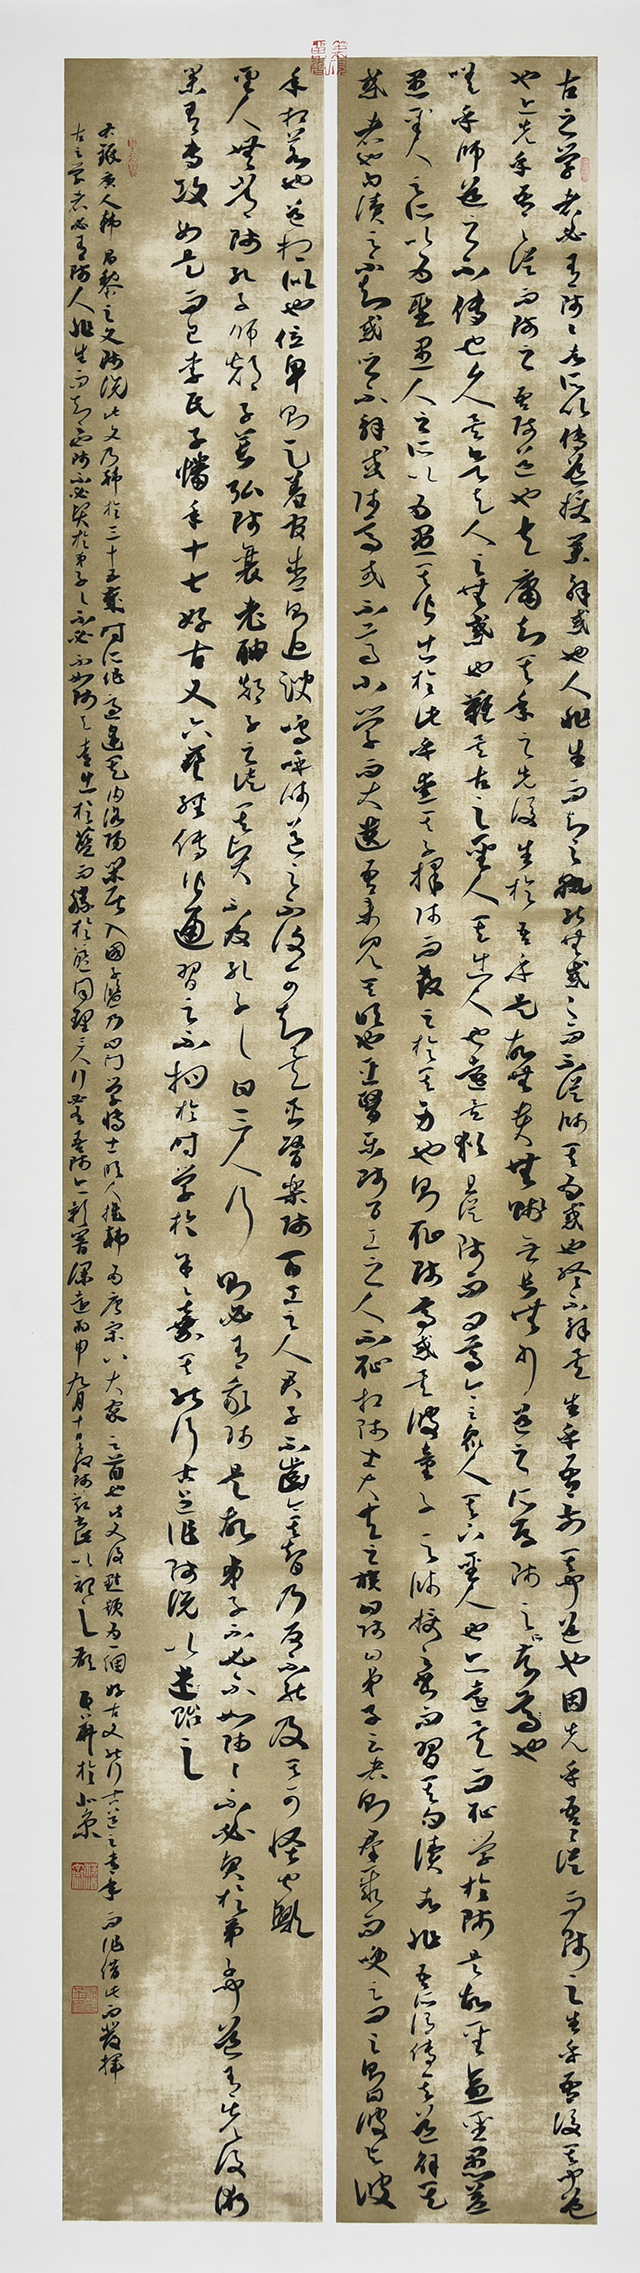 古之學者必有師師者所以傳道授業解惑也人非生而知之孰能無惑惑而不從師其為惑也終不解矣生乎吾前其聞道也固先乎吾吾從而師之生乎吾後其聞道
也亦先乎吾吾從而師之吾師道也夫庸知其年之先後生於吾乎是故無貴無賤無長無少道之所存師之所存也
嗟乎師道之不傳也久矣欲人之無惑也難矣古之聖人其出人也遠矣猶且從師而問焉今之眾人其下聖人也亦遠矣而恥學於師是故聖益聖愚益
愚聖人之所以為聖愚人之所以為愚其皆出於此乎愛其子擇師而教之於其身也則恥師焉惑矣彼童子之師授之書而習其句讀者非吾所謂傳其道解其
惑者也句讀之不知惑之不解或師焉或不焉小學而大遺吾未見其明也巫醫樂師百工之人不恥相師士大夫之族曰師曰弟子云者則群聚而笑之問之則曰彼與彼
年相若也道相似也位卑則足羞官盛則近諛嗚呼師道之不復可知矣巫醫樂師百工之人君子不齒今其智乃反不能及其可怪也歟
聖人無常師孔子師郯子萇弘師襄老聃郯子之徒其賢不及孔子孔子曰三人行則必有我師是故弟子不必不如師師不必賢於弟子聞道有先後術
業有專攻如是而已李氏子蟠年十七好古文六藝經傳皆通習之不拘於時學於余余嘉其能行古道作師說以貽之
右錄唐人韓昌黎之文師說此文乃韓於三十五歲時所作 入國子監乃四門學博士明人推韓為唐宋八大家之首也 好古文能行古道之青年而作借此而發揮
古之學者必有師人非生而知之 師不必賢於弟子弟子不必不如師 青出於藍而勝於藍同理三人行必有吾師 丙申九月十日教師節 於北京